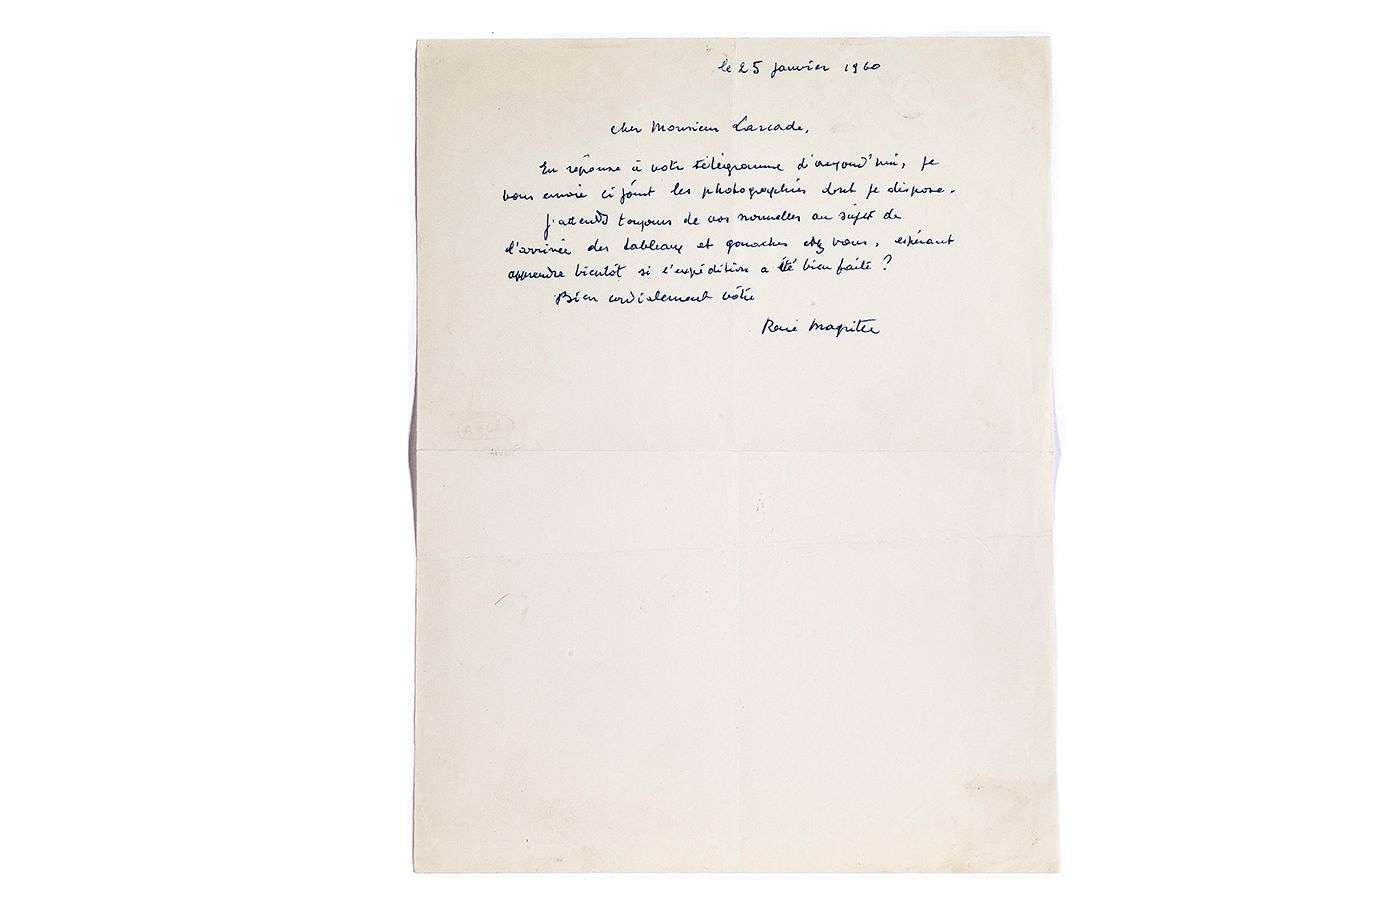 le 25 janvier 1960
cher Monsieur Lascade,
En réponse à votre télégramme d'aujourd'hui, je
vous envoie ci joint les photographies dont je dispose.
J'attends toujours de vos nouvelles au sujet de
l'arrivée des tableaux et gouaches chez vous, espérant
apprendre bientôt si l'expédition a été bien faite ?
Bien cordialement vôtre
René Magritte